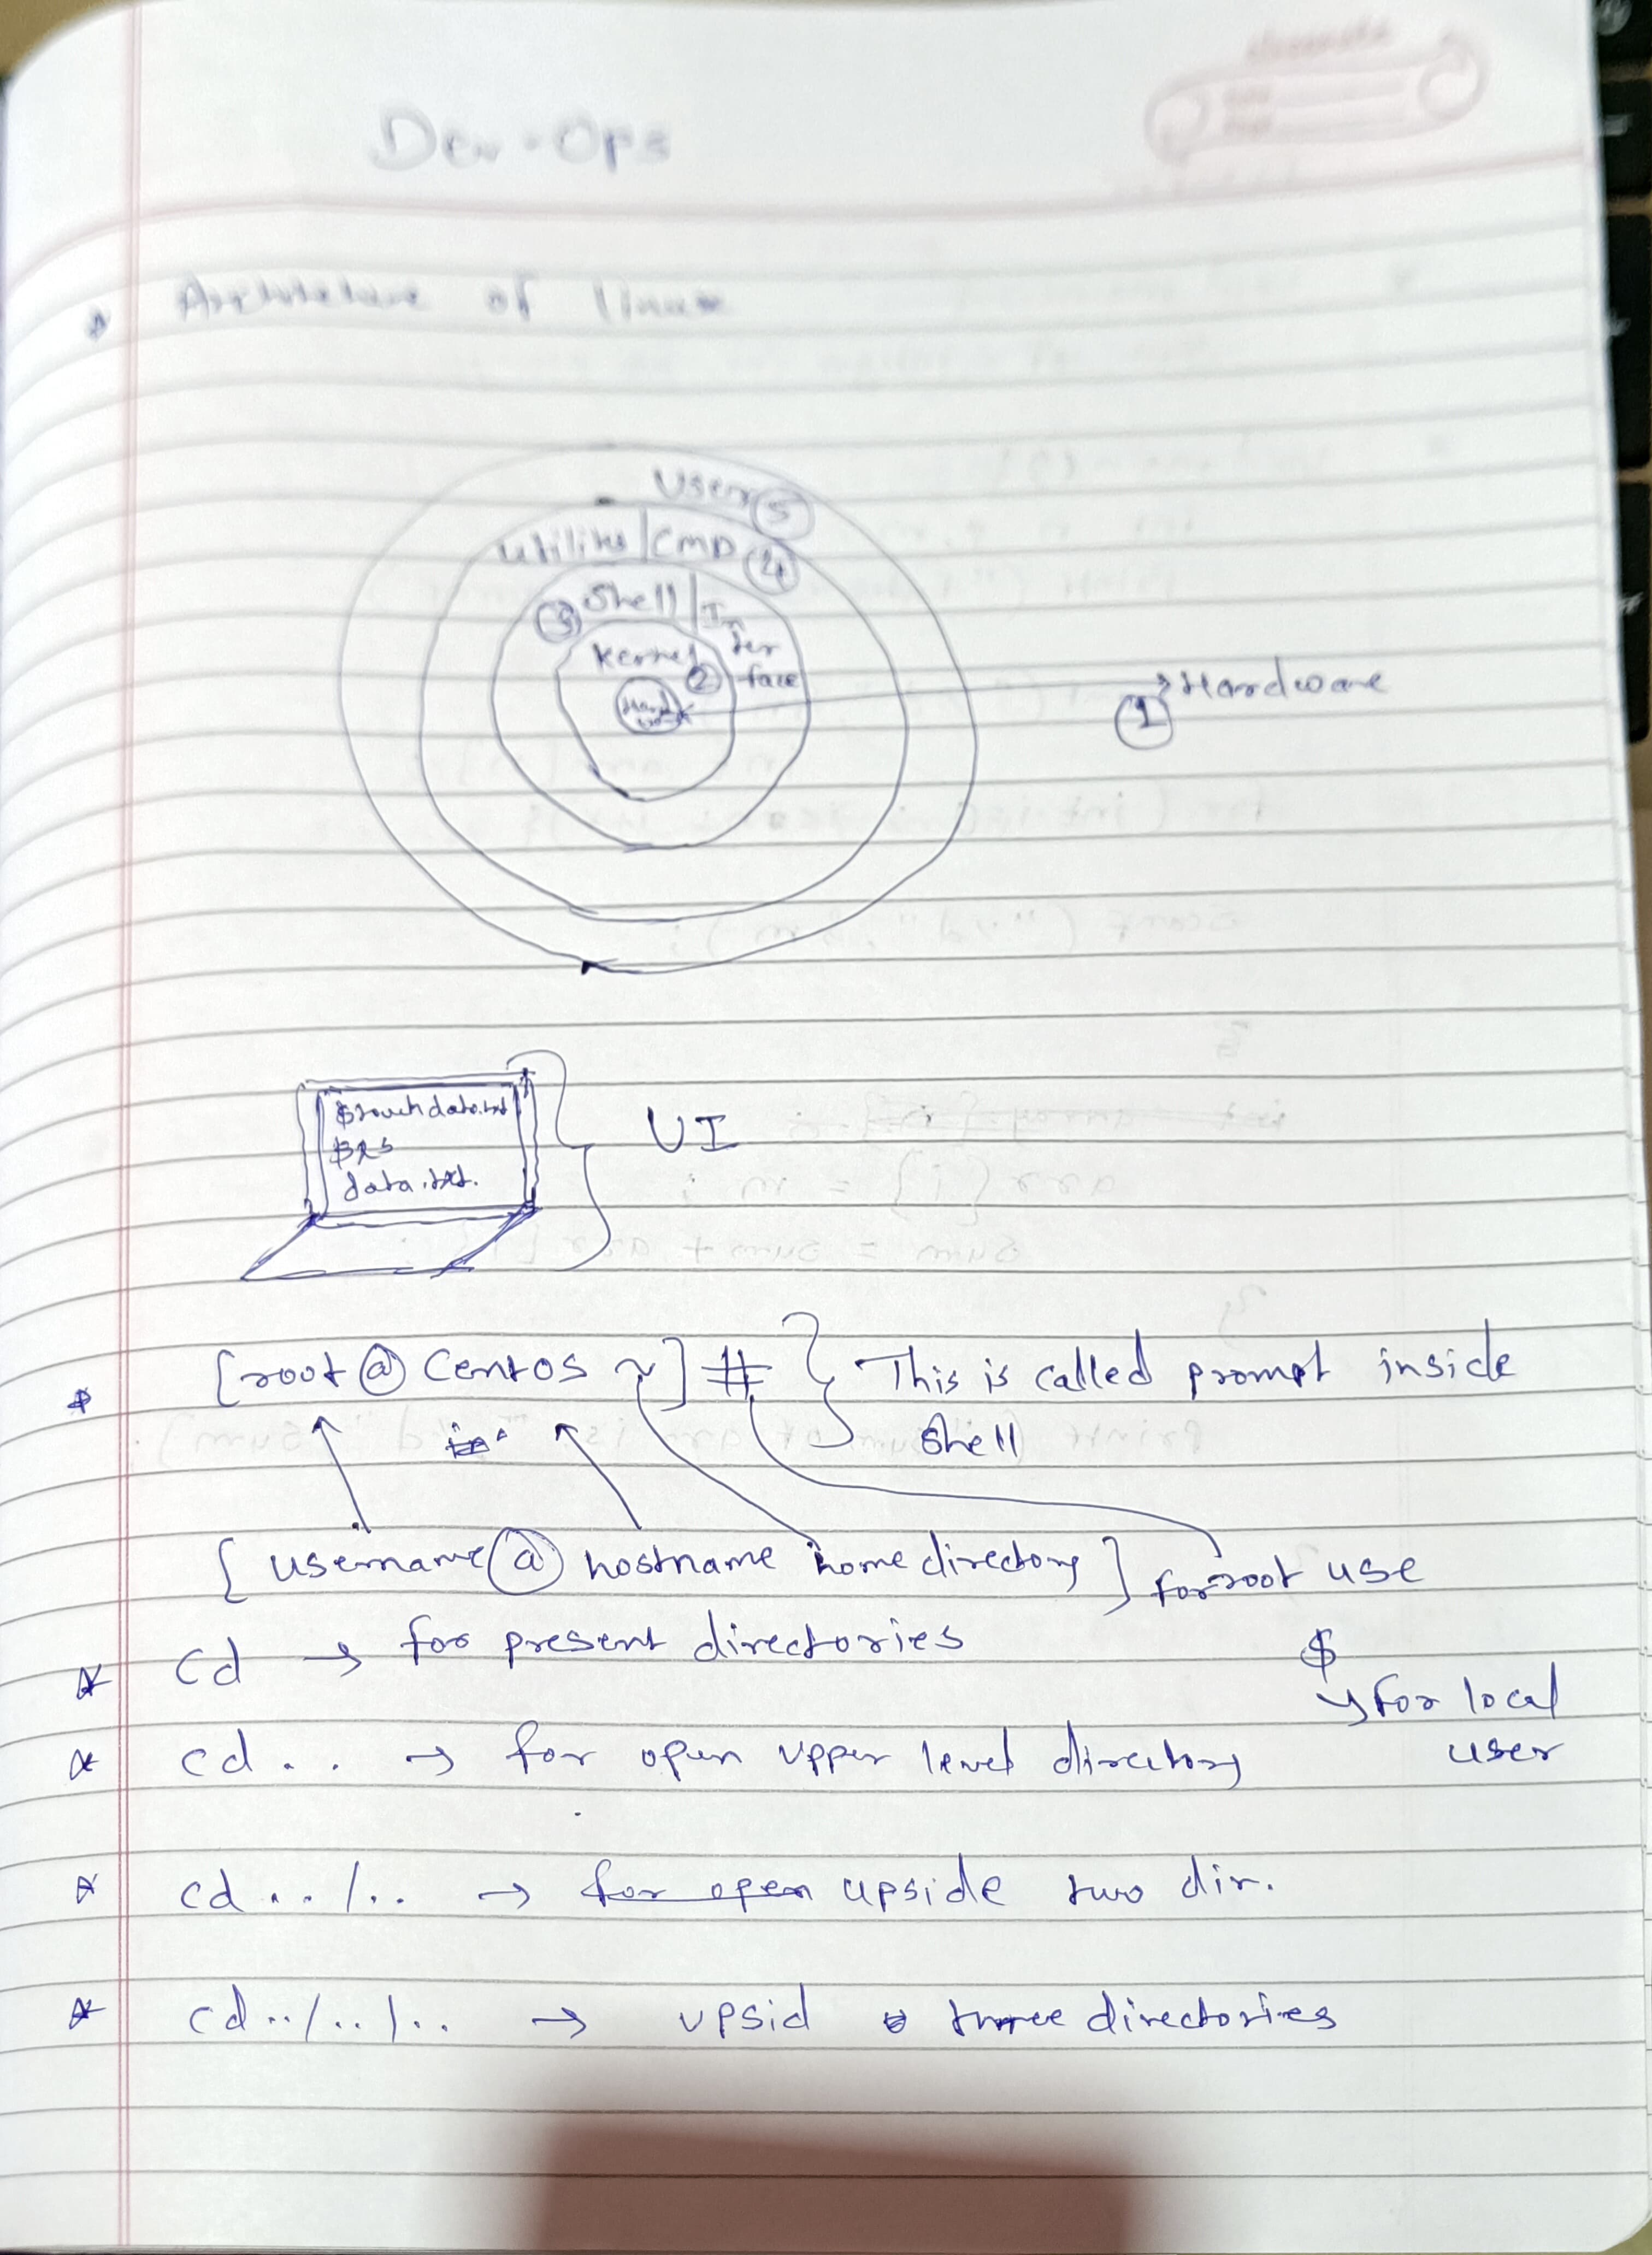 Dev-Ops
Architeture of linux
User 5
Utilites / CMD 4
3 Shell / Inter face
Kernel 2
Hard
1 Hardware
$touch data.txt
$ls
data.txt.
UI
[root @ Centos ~] # } This is called prompt inside
Shell
[ username @ hostname home directory ] for root use
$
for local
user
cd → for present directories
cd .. → for open upper level directory
cd ../.. → for open upside two dir.
cd../../.. → upsid three directories